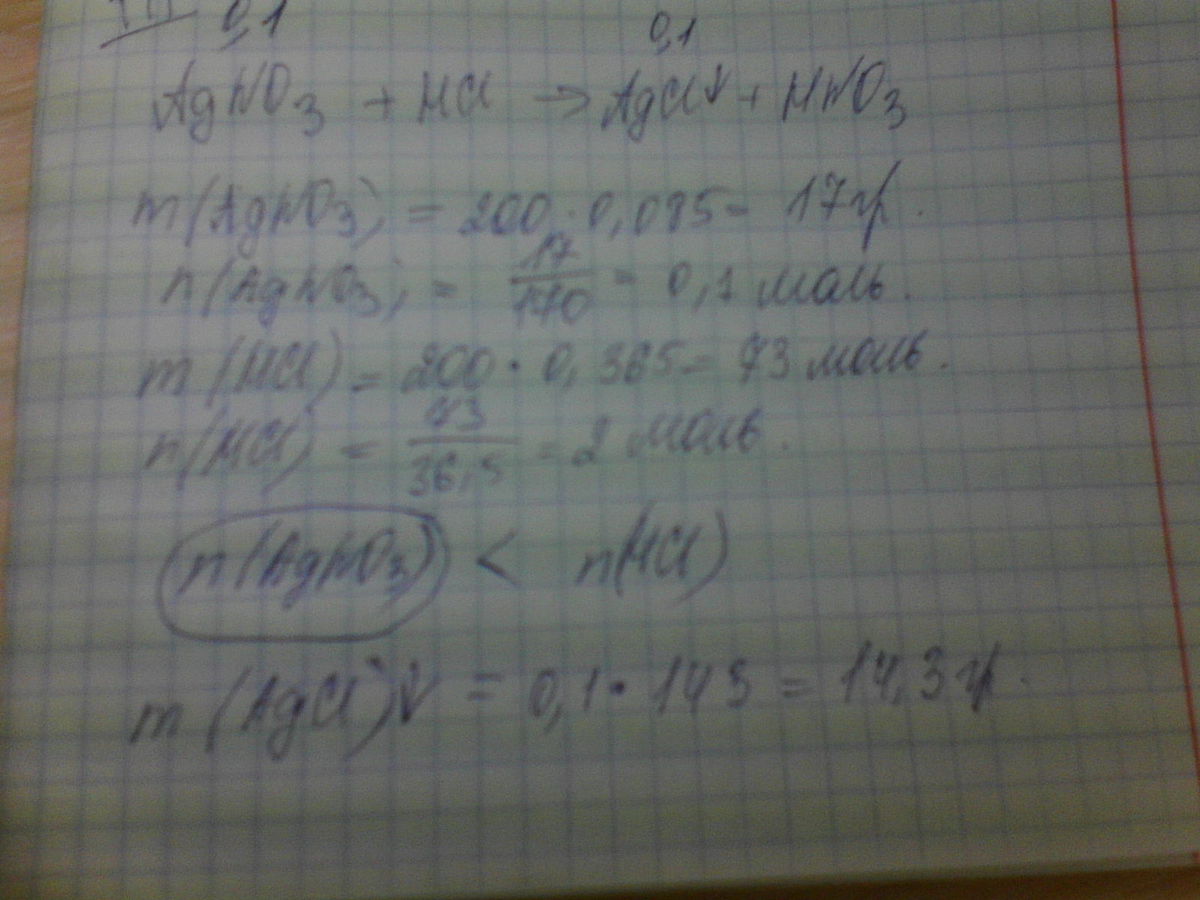 0,1 0,1
AgNO3 + HCl → AgCl↓ + HNO3
m(AgNO3) = 200 · 0,085 = 17 гр.
n(AgNO3) = 17/170 = 0,1 моль.
m(HCl) = 200 · 0,365 = 73 моль.
n(HCl) = 73/36,5 = 2 моль.
n(AgNO3) < n(HCl)
m(AgCl)↓ = 0,1 · 143 = 14,3 гр.